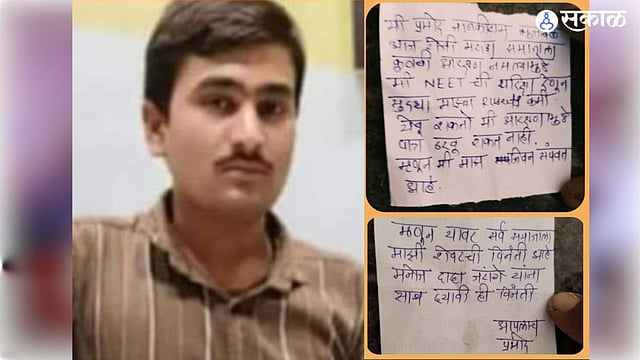 सकाळ
मी प्रमोद जानकीराम
आज रोजी मराठा समाजाला
कुनबी आरक्षण नसल्यामुळे
मी NEET ची परिक्षा देऊन
सुद्धा माझा कमी
येवू शकतो मी आरक्षण
पात्र ठरवू शकत नाही.
म्हणून मी माझ जिवन संपवत
आहे.
म्हणून यावर सर्व समाजाला
माझी शेवटची विनंती आहे
मनोज दादा जरांगे यांना
साथ दयावी ही विनंती
आपलाच
प्रमोद